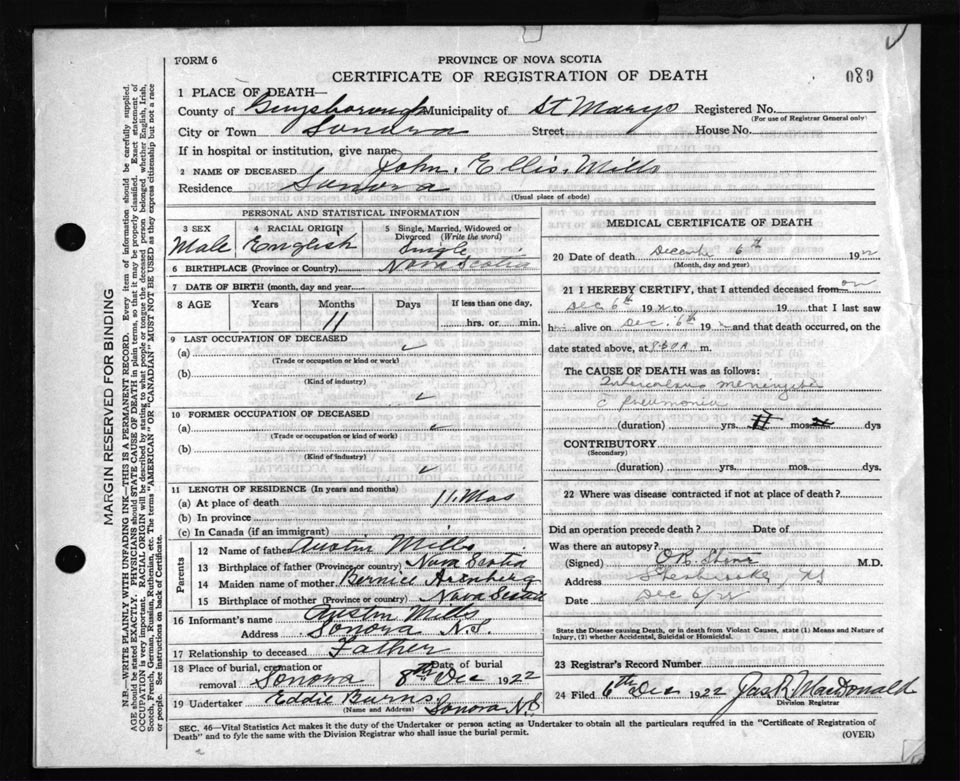 FORM 6
PROVINCE OF NOVA SCOTIA
CERTIFICATE OF REGISTRATION OF DEATH
089
1 PLACE OF DEATH—
County of Guysborough Municipality of St Marys Registered No.
(For use of Registrar General only)
City or Town Sonora Street House No.
If in hospital or institution, give name
2 NAME OF DECEASED John. Ellis. Mills
Residence Sonora
(Usual place of abode)
PERSONAL AND STATISTICAL INFORMATION
3 SEX 4 RACIAL ORIGIN 5 Single, Married, Widowed or Divorced (Write the word)
Male English Single
6 BIRTHPLACE (Province or Country) Nova Scotia
7 DATE OF BIRTH (month, day and year)
8 AGE Years Months Days If less than one day,
11 hrs. or min.
9 LAST OCCUPATION OF DECEASED
(a) ✓
(Trade or occupation or kind or work)
(b)
(Kind of industry)
✓
10 FORMER OCCUPATION OF DECEASED
(a) ✓
(Trade or occupation or kind of work)
(b)
(Kind of industry)
✓
11 LENGTH OF RESIDENCE (In years and months)
(a) At place of death 11. Mos
(b) In province
(c) In Canada (if an immigrant)
Parents
12 Name of father Austin Mills
13 Birthplace of father (Province or country) Nova Scotia
14 Maiden name of mother Bernice
15 Birthplace of mother (Province or country) Nova Scotia
16 Informant's name Austin Mills
Address Sonora N.S.
17 Relationship to deceased Father
18 Place of burial, cremation or removal Sonora Date of burial 8th Dec 1922
19 Undertaker Eddie Burns
(Name and Address) Sonora N.S
MEDICAL CERTIFICATE OF DEATH
20 Date of death December 6th 1922
(Month, day and year)
21 I HEREBY CERTIFY, that I attended deceased from on
Dec 6th 1922 to 19 that I last saw
h alive on Dec. 6th 19 and that death occurred, on the
date stated above, at m.
The CAUSE OF DEATH was as follows:
Tuberculous meningitis
c pneumonia
(duration) yrs. mos. dys
CONTRIBUTORY
(Secondary)
(duration) yrs. mos. dys.
22 Where was disease contracted if not at place of death?
Did an operation precede death? Date of
Was there an autopsy?
(Signed) M.D.
Address Sherbrooke, NS
Date Dec 6/22
State the Disease causing Death, or in death from Violent Causes, state (1) Means and Nature of
Injury, (2) whether Accidental, Suicidal or Homicidal.
23 Registrar's Record Number
24 Filed 6th Dec 1922 Jas R MacDonald
Division Registrar
SEC. 46—Vital Statistics Act makes it the duty of the Undertaker or person acting as Undertaker to obtain all the particulars required in the "Certificate of Registration of
Death" and to fyle the same with the Division Registrar who shall issue the burial permit.
(OVER)
MARGIN RESERVED FOR BINDING
N.B.—WRITE PLAINLY WITH UNFADING INK—THIS IS A PERMANENT RECORD. Every item of information should be carefully supplied.
AGE should be stated EXACTLY. PHYSICIANS should STATE CAUSE OF DEATH in plain terms, so that it may be properly classified. Exact statement of
OCCUPATION is very important. RACIAL ORIGIN will be described by stating to what people or tongue the deceased person belonged whether English, Irish,
Scotch, French, German, Russian, Ruthenian, etc. The terms "AMERICAN" OR "CANADIAN" MUST NOT BE USED as they express citizenship but not a race
or people. See instructions on back of Certificate.